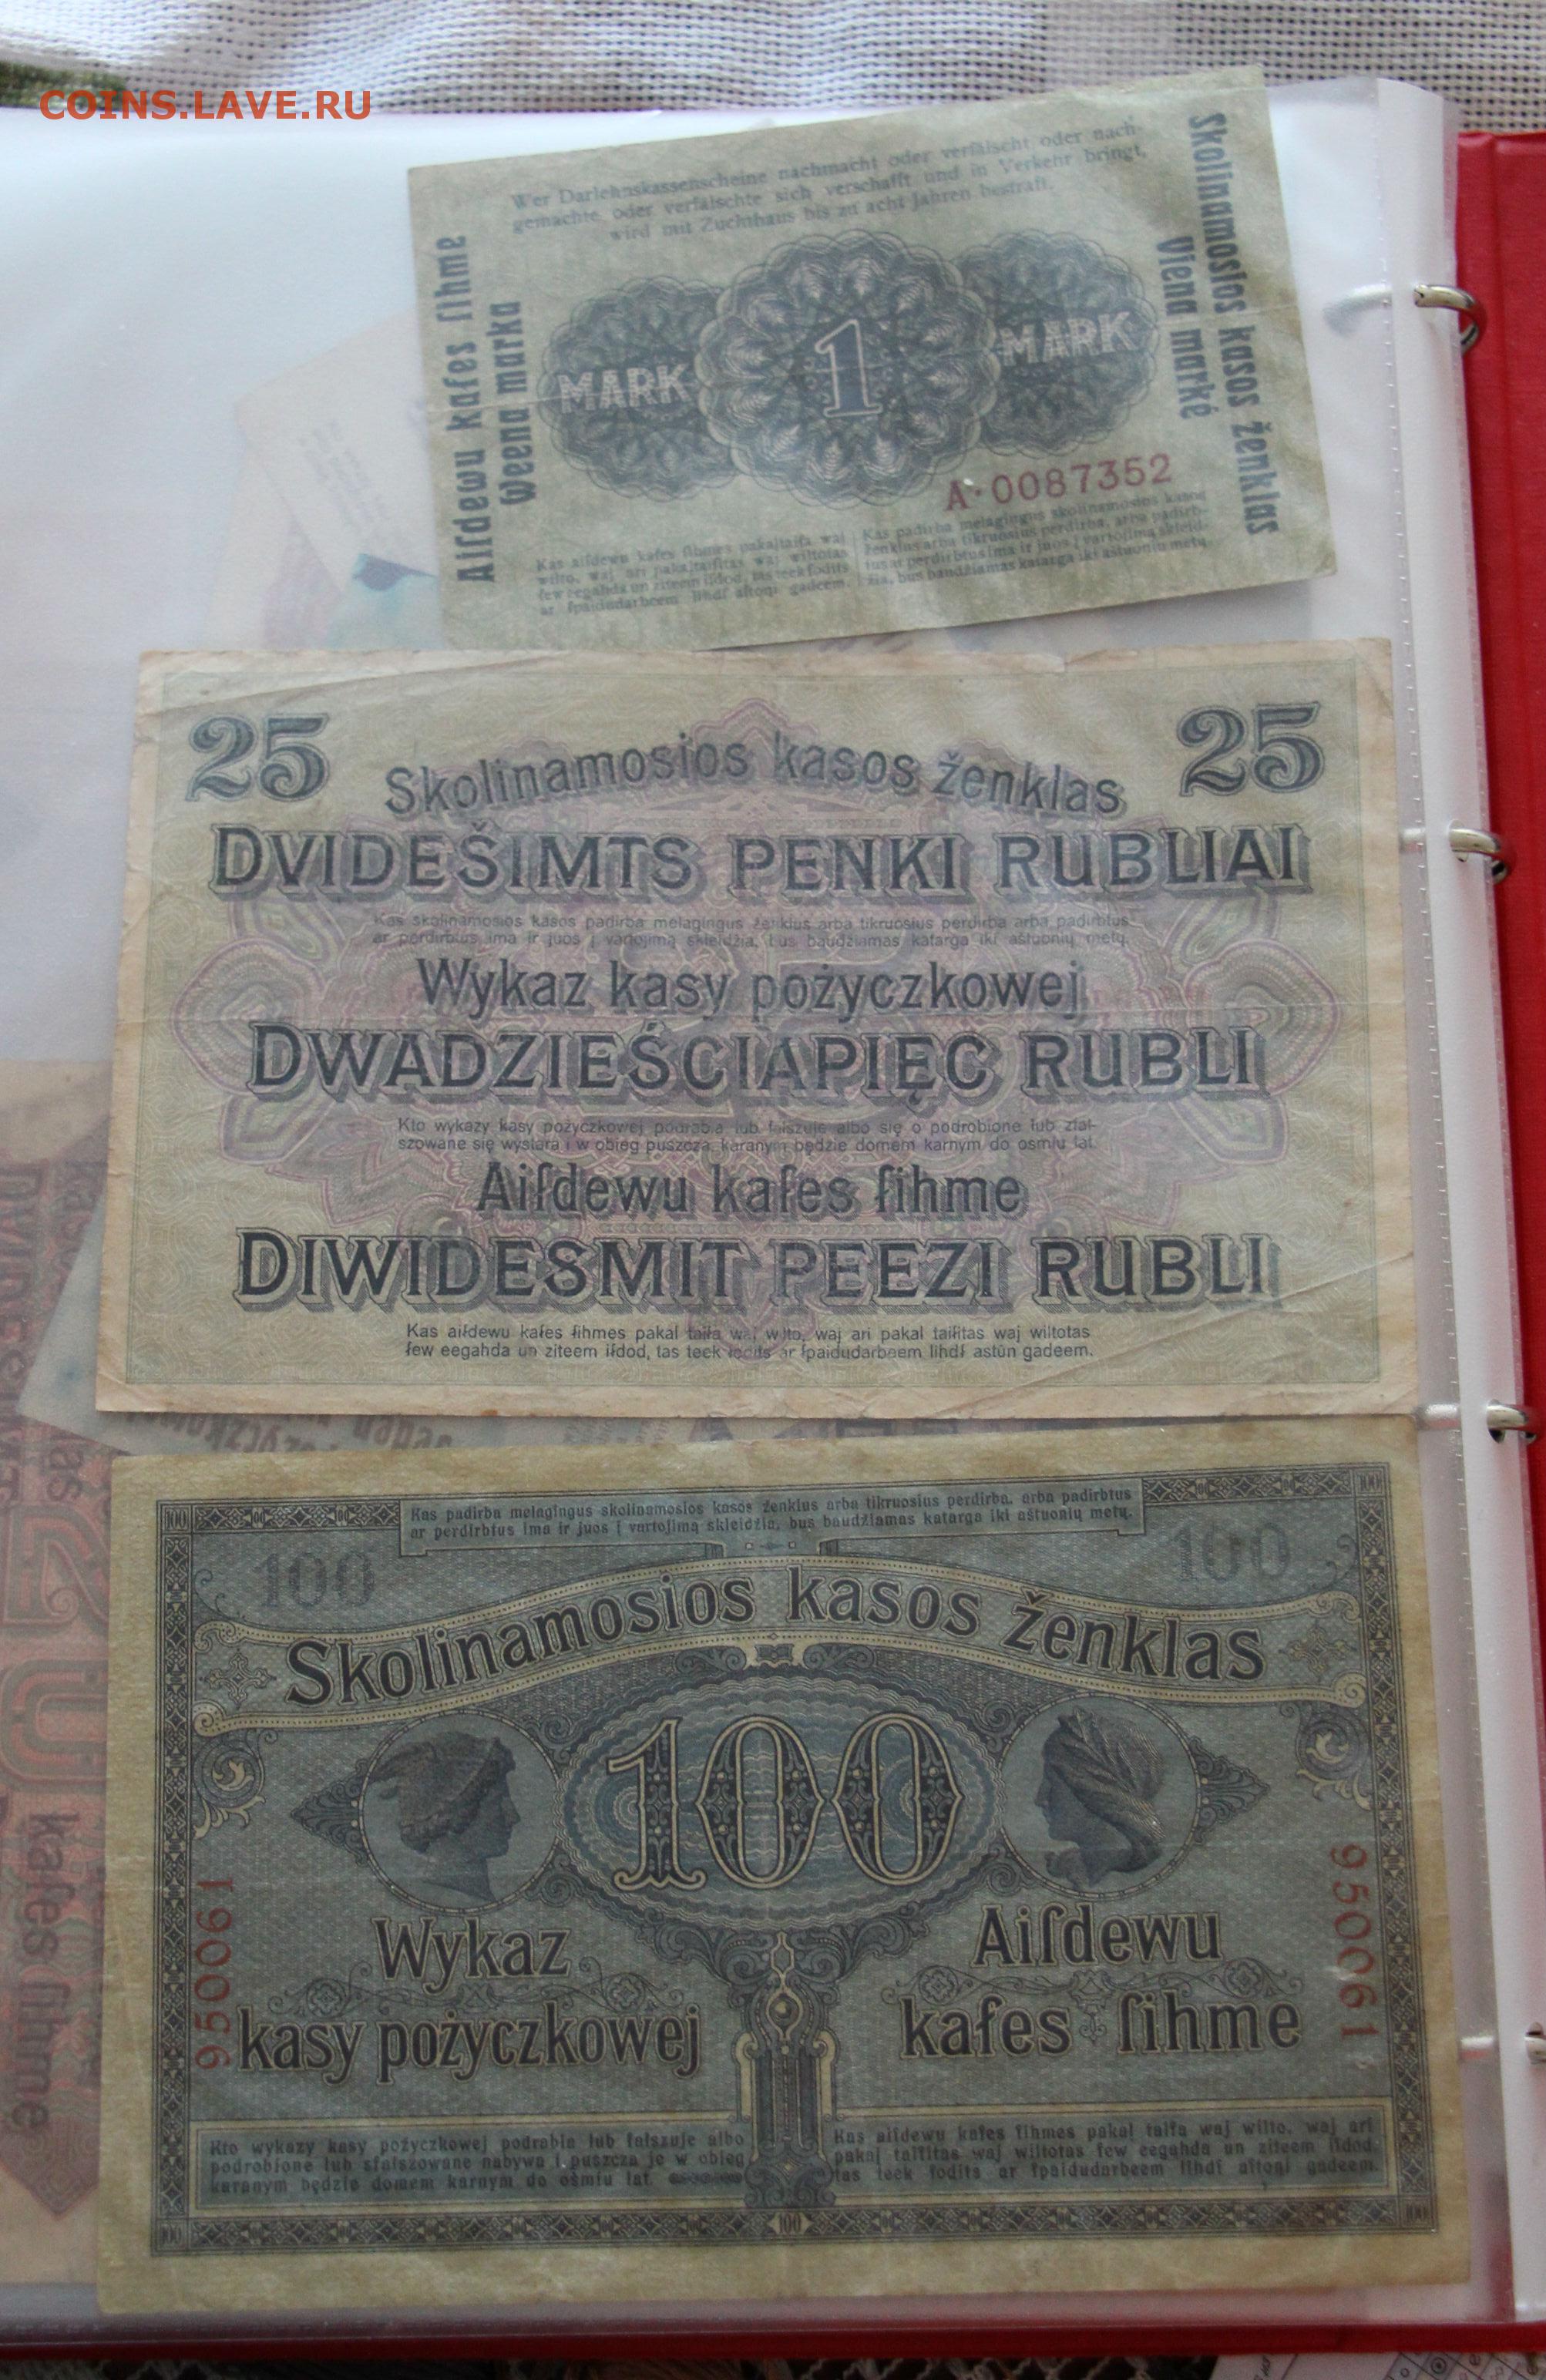 COINS.LAVE.RU
Wer Darlehnskassenscheine nachmacht oder verfälscht oder nach-
gemachte oder verfälschte sich verschafft und in Verkehr bringt,
wird mit Zuchthaus bis zu acht Jahren bestraft.
Aiſdewu kaſes ſihme
Weena marka
Skolinamosios kasos ženklas
Viena markė
MARK 1 MARK
A·0087352
Kas aiſdewu kaſes ſihmes pakaļtaiſa waj
wilto, waj ari pakaļtaiſitas waj wiltotas
ſew eegahda un ziteem iſdod, tas teek ſodits
ar ſpaidudarbeem lihdſ aſtoņi gadeem.
Kas padirba melagingus skolinamosios kasos
ženklus arba tikruosius perdirba, arba padirb-
tus ar perdirbtus ima ir juos į vartojimą skleid-
žia, bus baudžiamas katarga iki aštuonių metų.
25 25
Skolinamosios kasos ženklas
DVIDEŠIMTS PENKI RUBLIAI
Kas skolinamosios kasos padirba melagingus ženklus arba tikruosius perdirba arba padirbtus
ar perdirbtus ima ir juos į vartojimą skleidžia, bus baudžiamas katarga iki aštuonių metų.
Wykaz kasy pożyczkowej
DWADZIEŚCIAPIĘC RUBLI
Kto wykazy kasy pożyczkowej podrabia lub fałszuje albo się o podrobione lub zfał-
szowane się wystara i w obieg puszcza, karanym będzie domem karnym do ośmiu lat.
Aiſdewu kaſes ſihme
DIWIDESMIT PEEZI RUBLI
Kas aiſdewu kaſes ſihmes pakaļ taiſa waj wilto, waj ari pakaļ taiſitas waj wiltotas
ſew eegahda un ziteem iſdod, tas teek ſodits ar ſpaidudarbeem lihdſ astūn gadeem.
Kas padirba melagingus skolinamosios kasos ženklus arba tikruosius perdirba, arba padirbtus
ar perdirbtus ima ir juos į vartojimą skleidžia, bus baudžiamas katarga iki aštuonių metų.
100 100
Skolinamosios kasos ženklas
100
950061
950061
Wykaz
kasy pożyczkowej
Aiſdewu
kaſes ſihme
Kto wykazy kasy pożyczkowej podrabia lub fałszuje albo
podrobione lub sfałszowane nabywa i puszcza je w obieg
karanym będzie domem karnym do ośmiu lat
Kas aiſdewu kaſes ſihmes pakaļ taiſa waj wilto, waj ari
pakaļ taiſitas waj wiltotas ſew eegahda un ziteem iſdod,
tas teek ſodits ar ſpaidudarbeem lihdſ aſtoņi gadeem.
100
kaſes ſihme